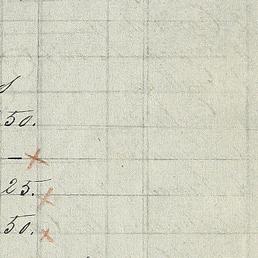 50.
—
25.
50.